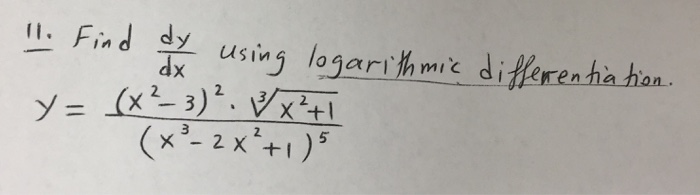 11. Find dy/dx using logarithmic differentiation.
y = (x²-3)² · ∛(x²+1) / (x³-2x²+1)⁵